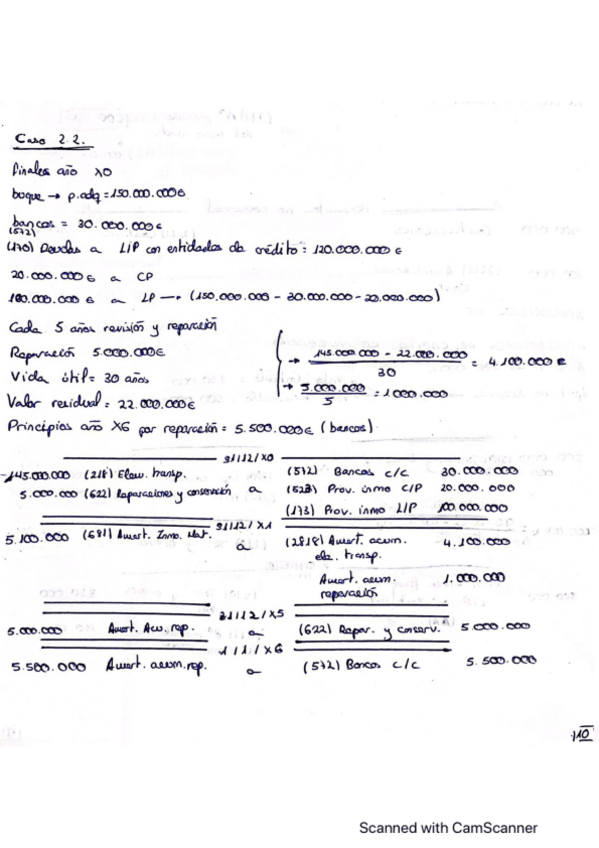 Caso 2.2.
Finales año X0
buque → p.adq = 150.000.000€
bancos = 30.000.000€
(572)
(170) Deudas a L/P con entidades de crédito = 120.000.000 €
20.000.000 € a CP
100.000.000 € a LP → (150.000.000 - 30.000.000 - 20.000.000)
Cada 5 años revisión y reparación
Reparación 5.000.000€
Vida útil = 30 años
Valor residual = 22.000.000€
→ 145.000.000 - 22.000.000 / 30 = 4.100.000 €
→ 5.000.000 / 5 = 1.000.000
Principios año X6 por reparación = 5.500.000€ (bancos)
31/12/X0
145.000.000 (218) Elem. transp. (572) Bancos c/c 30.000.000
5.000.000 (622) Reparaciones y conservación a (523) Prov. inmo C/P 20.000.000
(173) Prov. inmo L/P 100.000.000
31/12/X1
5.100.000 (681) Amort. Inmo. Mat. a (2818) Amort. acum. 4.100.000
ele. transp.
Amort. acum. 1.000.000
reparación
31/12/X5
5.000.000 Amort. Acu. rep. a (622) Repar. y conserv. 5.000.000
1/1/X6
5.500.000 Amort. acum. rep. a (572) Bancos c/c 5.500.000
110
Scanned with CamScanner